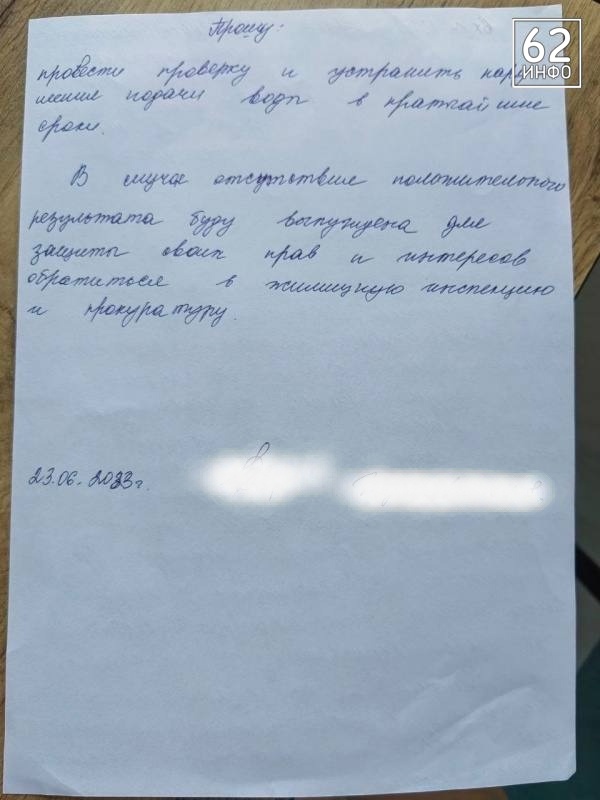 Прошу:
62
ИНФО
провести проверку и устранить нару-
шения подачи воды в кратчайшие
сроки.
В случае отсутствие положительного
результата буду вынуждена для
защиты своих прав и интересов
обратиться в жилищную инспекцию
и прокуратуру.
23.06.2023г.